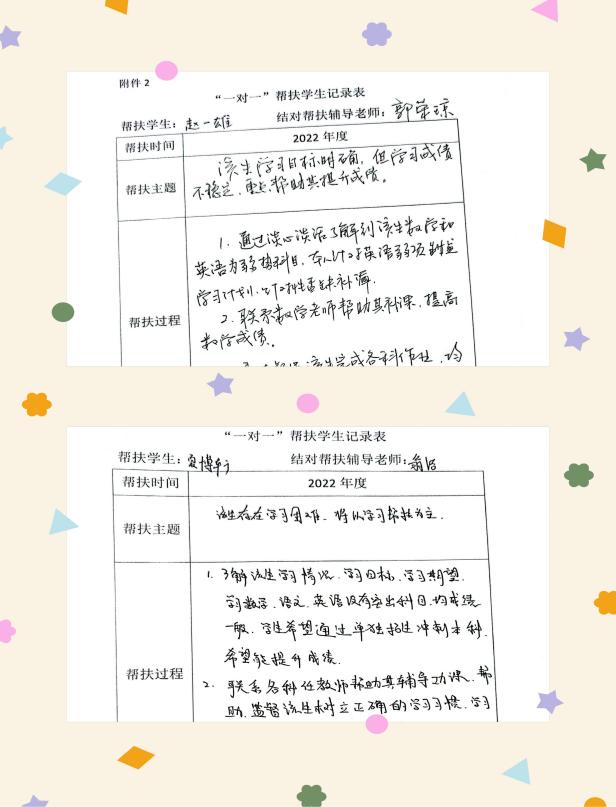 附件 2
“一对一”帮扶学生记录表
帮扶学生：赵一雄 结对帮扶辅导老师：郭荣琼
帮扶时间 2022 年度
帮扶主题 该生学习目标明确，但学习成绩
不稳定，重点帮助其提升成绩。
1. 通过谈心谈话了解到该生数学和
英语为弱势科目，本人针对英语弱项制定
学习计划，针对性查缺补漏。
帮扶过程
2. 联系数学老师帮助其补课，提高
数学成绩。
该生完成各科作业，均
“一对一”帮扶学生记录表
帮扶学生： 结对帮扶辅导老师：
帮扶时间 2022 年度
帮扶主题 该生存在学习困难，将以学习帮扶为主.
1. 了解该生学习情况、学习目标、学习期望.
学习数学、语文、英语没有突出科目，均成绩
一般，学生希望通过单独招生冲刺本科，
希望能提升成绩.
帮扶过程
2. 联系各科任教师帮助其辅导功课，帮
助、监督该生树立正确的学习习惯，学习